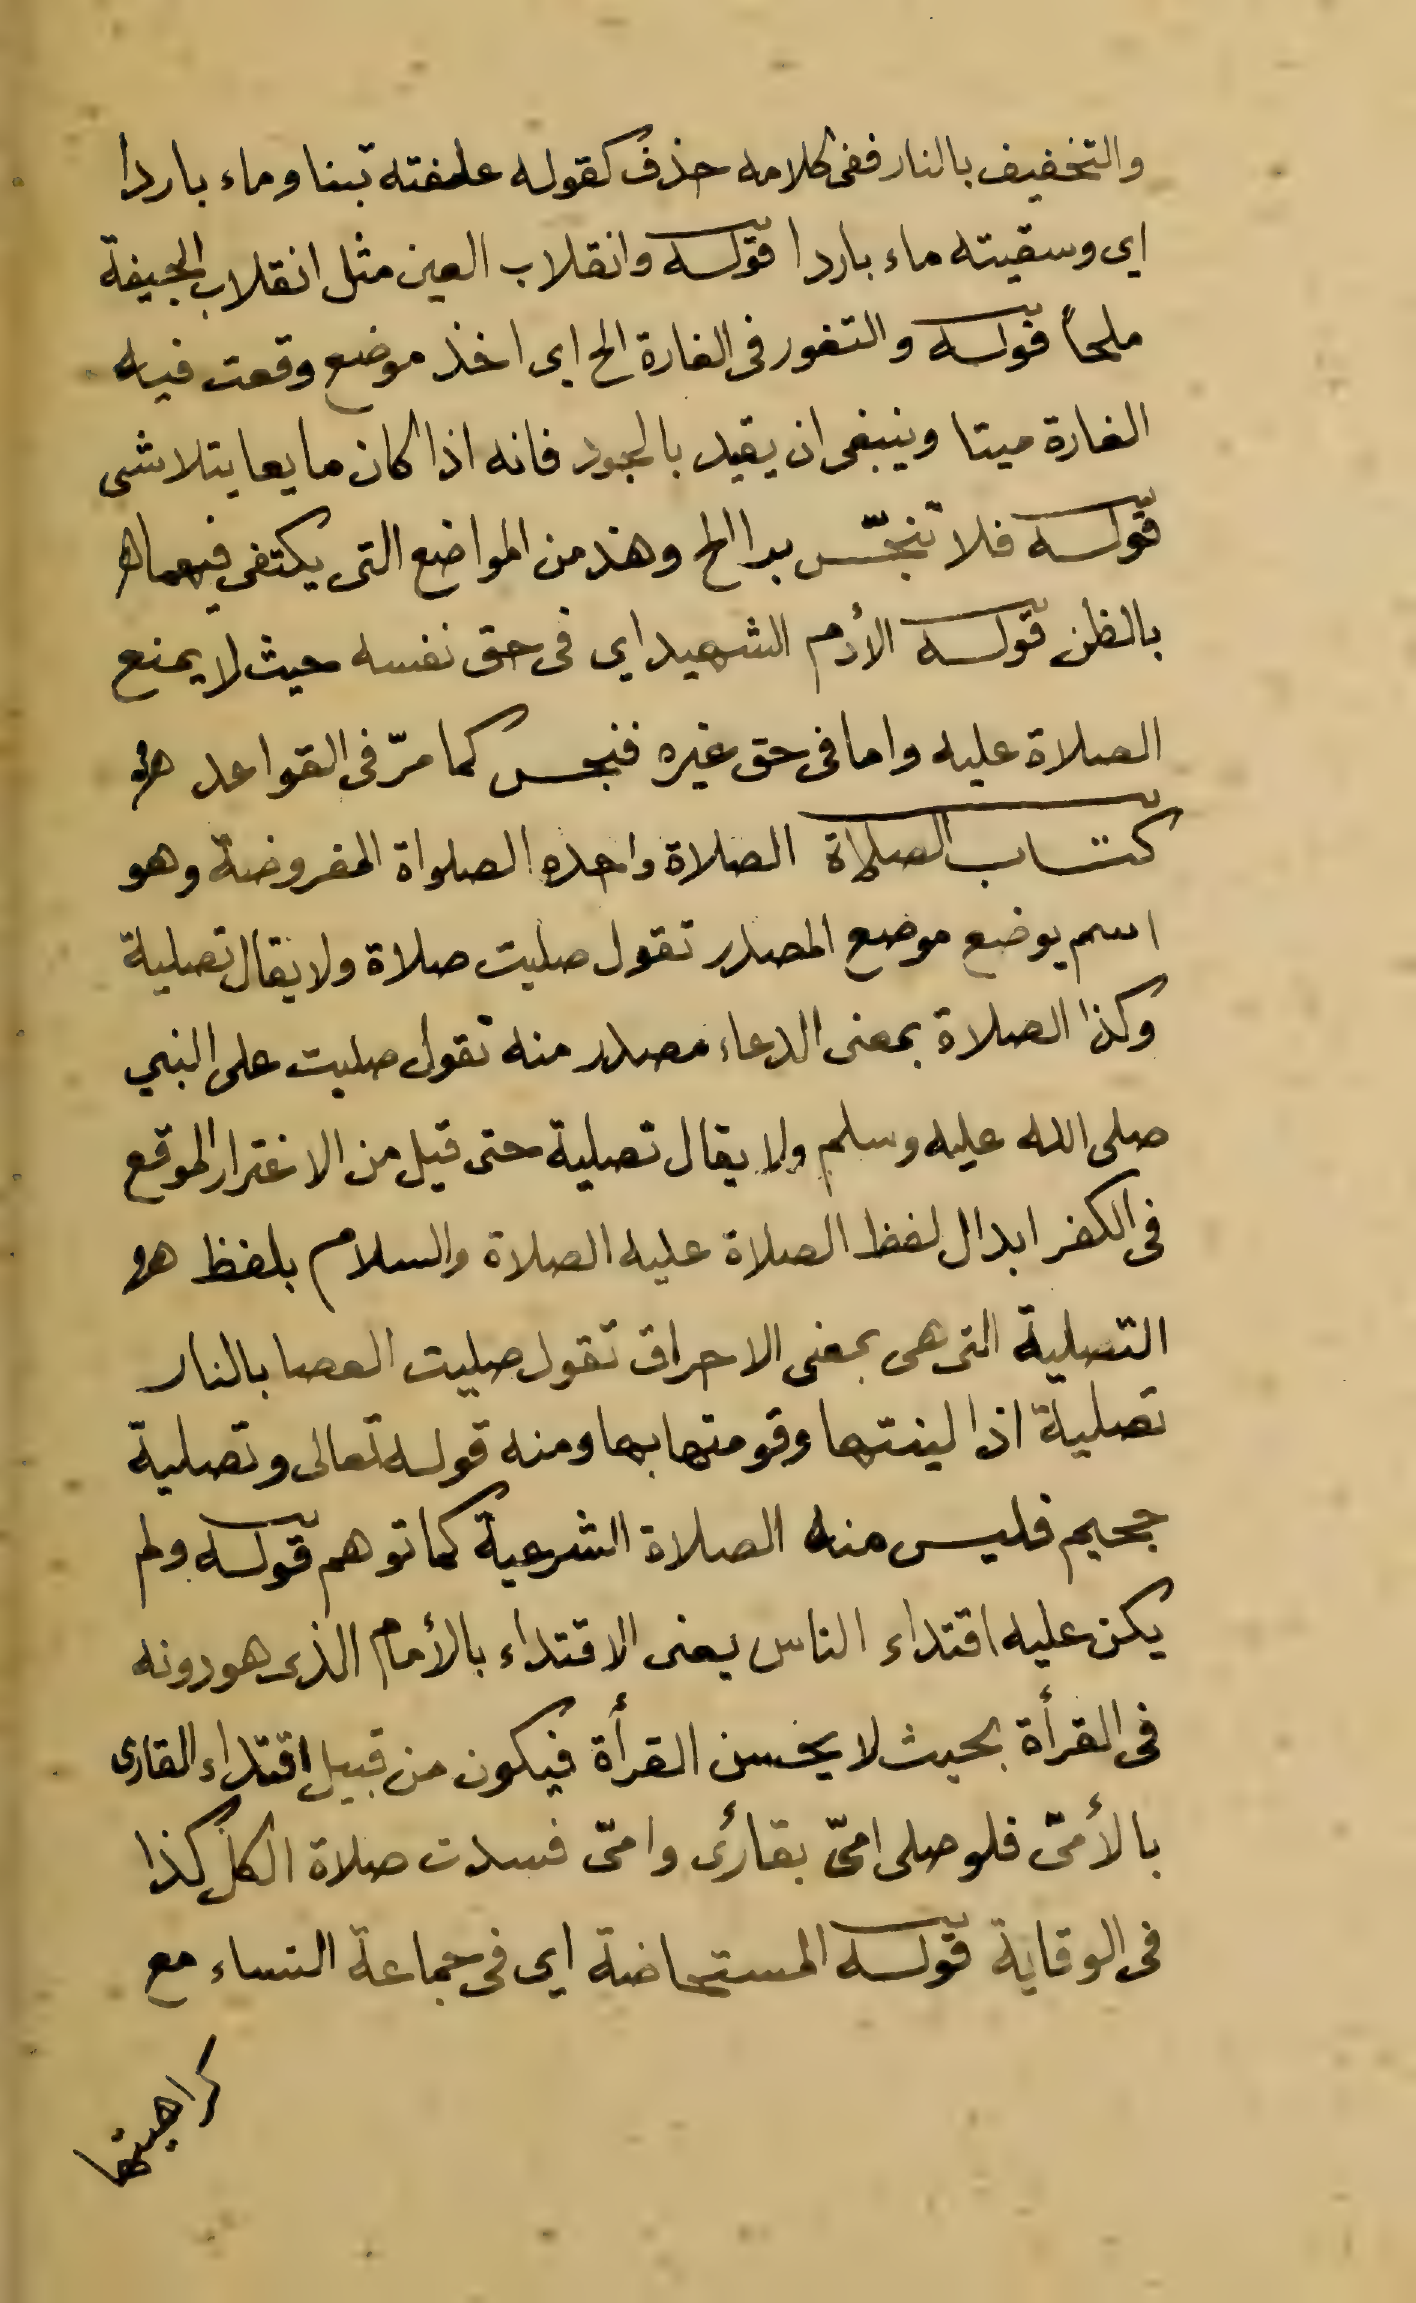 والتخفيف بالنار ففى كلامه حذف كقوله علفته تبنا وماء باردا
اى وسقيته ماء باردا قوله وانقلاب العين مثل انقلاب الجيفة
ملحاً قوله والتغور فى الفارة الخ اى اخذ موضع وقعت فيه
الفارة ميتا وينبغى ان يقيد بالجمود فانه اذا كان مايعا يتلاشى
قوله فلا تنجّس بدا الخ وهذ من المواضع التى يكتفى فيهما
بالظن قوله الأدم الشهيد اى فى حق نفسه حيث لا يمنع
الصلاة عليه واما فى حق غيره فنجس كما مرّ فى القواعد
كتاب الصلاة الصلاة واحده الصلواة المفروضة وهو
اسم يوضع موضع المصدر تقول صليت صلاة ولا يقال تصلية
وكذا الصلاة بمعنى الدعاء مصدر منه تقول صليت على النبي
صلى الله عليه وسلم ولا يقال تصلية حتى قيل من الاغترار الموقع
فى الكفر ابدال لفظ الصلاة عليه الصلاة والسلام بلفظ
التصلية التى هى بمعنى الاحراق تقول صليت العصا بالنار
تصلية اذا لينتها وقومتها بها ومنه قوله تعالى وتصلية
جحيم فليس منه الصلاة الشرعية كما توهم قوله ولم
يكن عليه اقتداء الناس يعنى الاقتداء بالأمام الذى هو دونه
فى القرأة بحيث لا يحسن القرأة فيكون من قبيل اقتداء القارى
بالأمىّ فلو صلى امىّ بقارئ وامىّ فسدت صلاة الكل كذا
فى الوقاية قوله المستحاضة اى فى جماعة النساء مع
كراهيتها